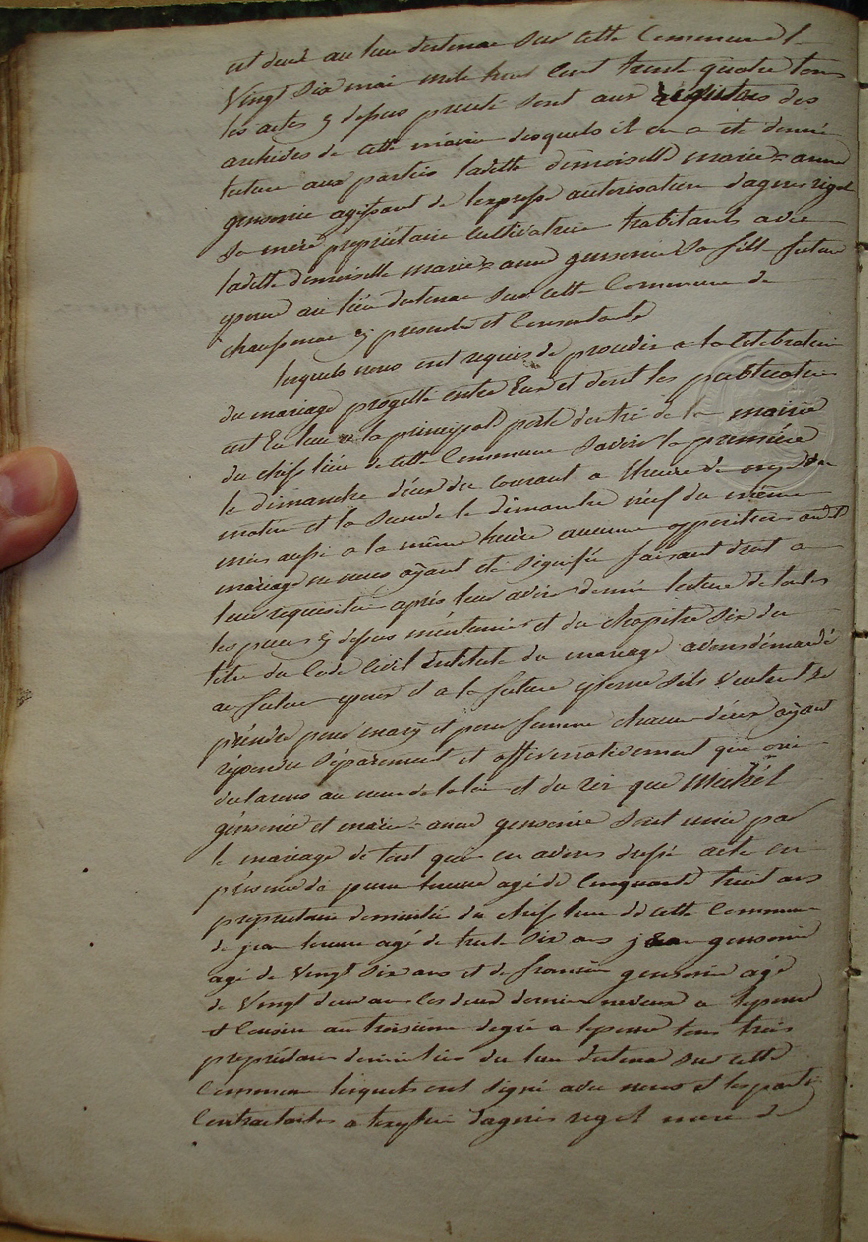 est decedé au lieu destenac sur cette Commune le
Vingt Six mai mile huit Cent trente quatre tous
les actes cy dessus precité sont aux registres des
archives de cette mairie desquels il en a ete donné
lecture aux parties ladette demoiselle marie-anne
gensonie agissant de lexpresse autorisation dagnes rigal
Sa mere propriétaire Cultivatrice habitants avec
ladette demoiselle marie-anne gensonie Sa fille future
epouse au lieu destenac Sur cette Commune de
chaussenac cy presente et Consentante
lesquels nous ont requis de proceder a la Celebration
du mariage progetté entre Eux et dont les publications
ont Eu lieu a la principal porte dentré de la mairie
du chef lieu de cette Commune Savoir la premiere
le dimanche deux du courant a lheure de
matin et la Seconde le dimanche neuf du même
mois aussi a la même heure aucune opposition audit
mariage ne nous ayant eté Signifié faisant droit a
leur requisition aprés leur avoir donné lecture de toutes
les pieces cy dessus mentionnées et du chapitre Six du
titre du Code Civil intitulé du mariage avons demandé
au futur epoux et a la future epouse Sils veulent Se
prendre pour mary et pour femme chacun deux ayant
repondu Séparement et affirmativement que oui
declarons au nom de la loi et du roi que Michél
génsonie et marie-anne gensonie Sont unis par
le mariage de tout quoi en avons dressé acte en
présence de agé de Cinquante huit ans
propriétaire domicilié du chef lieu de cette Commune
de jean agé de trente Six ans jean gensonie
agé de Vingt Six ans et de francois gensonie agé
de Vingt deux ans les deux derniers neveux a lepoux
et Cousin au troisième degré a lepouse tous trois
propriétaires domiciliés du lieu destenac Sur cette
Commune lesquels ont Signé avec nous et les parties
Contractantes a lexeption dagnés rigal mere de